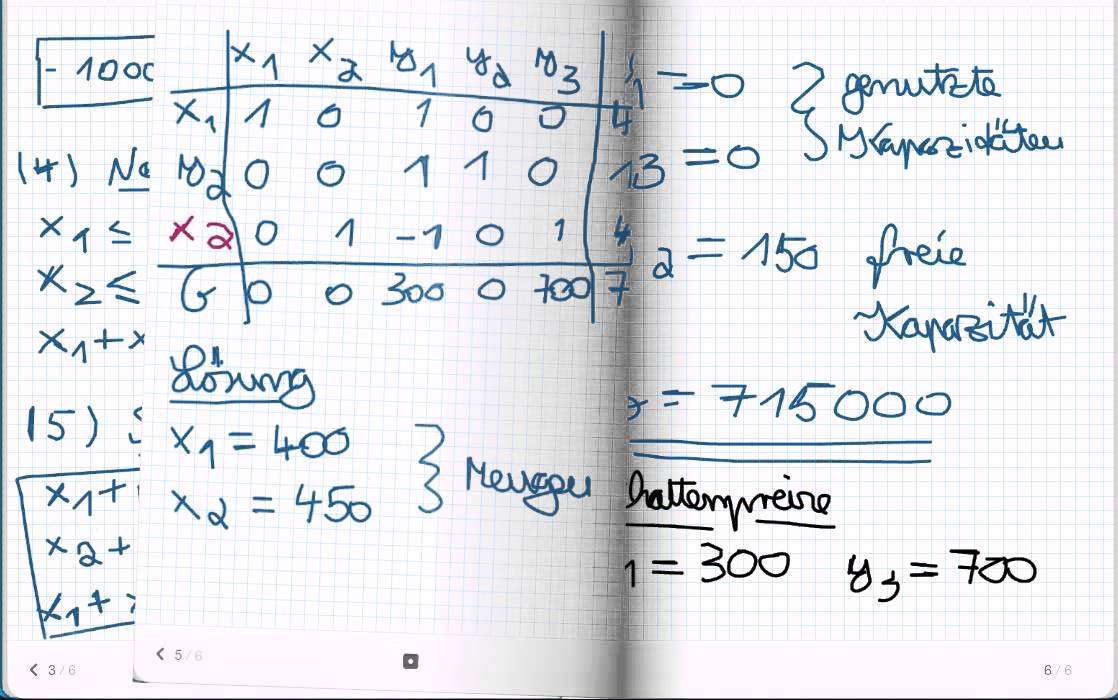 - 1000
(4)
x1 ≤
x2 ≤
x1 + x
(5)
x1 +
x2 +
x1 +
< 3 / 6
x1 x2 y1 y2 y3
x1 1 0 1 0 0 4
y2 0 0 1 1 0 13
x2 0 1 -1 0 1 4
G 0 0 300 0 700 7
Lösung
x1 = 400
x2 = 450 } Mengen
< 5 / 6
1 = 0 } genutzte
= 0 Kapazidäten
2 = 150 freie
Kapazität
= 715000
hattenpreise
1 = 300 y3 = 700
6 / 6